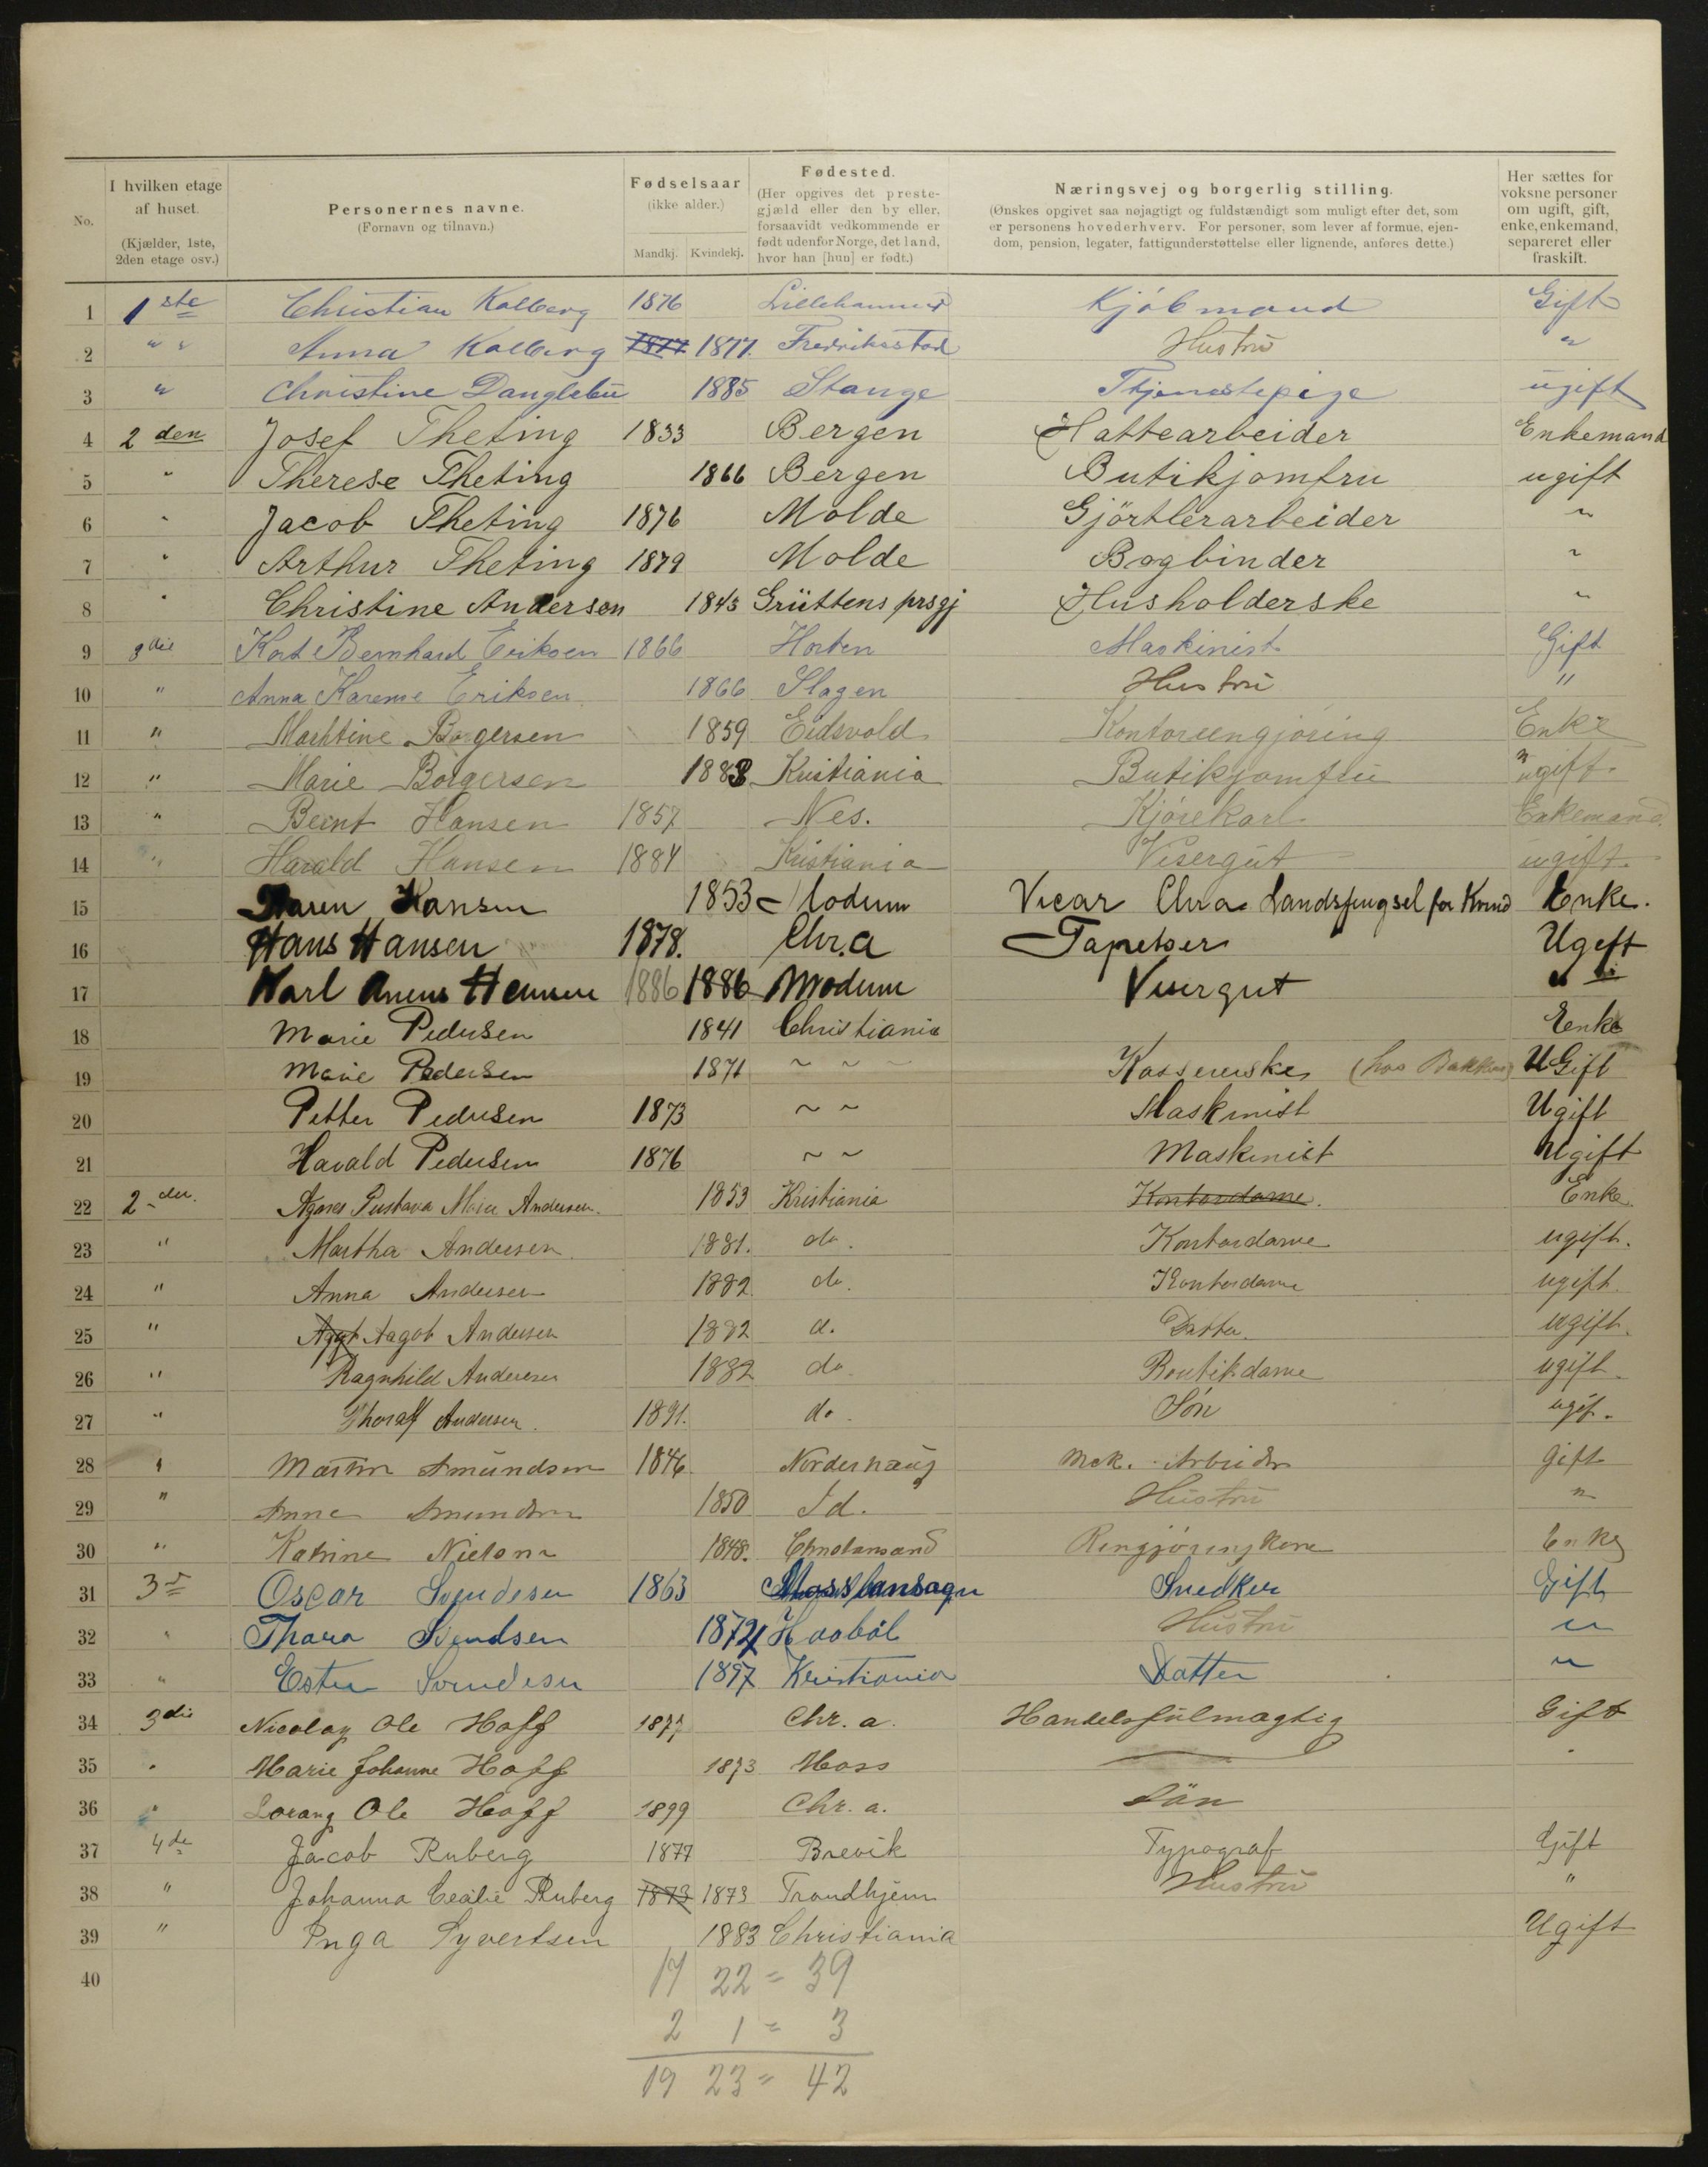 No.
I hvilken etage af huset. (Kjælder, 1ste, 2den etage osv.)
Personernes navne. (Fornavn og tilnavn.)
Fødselsaar (ikke alder.) Mandkj. Kvindekj.
Fødested. (Her opgives det prestegjæld eller den by eller, forsaavidt vedkommende er født udenfor Norge, det land, hvor han [hun] er født.)
Næringsvej og borgerlig stilling. (Ønskes opgivet saa nøjagtigt og fuldstændigt som muligt efter det, som er personens hovederhverv. For personer, som lever af formue, ejendom, pension, legater, fattigunderstøttelse eller lignende, anføres dette.)
Her sættes for voksne personer om ugift, gift, enke, enkemand, separeret eller fraskilt.
1 1ste Christian Kolberg 1876 Lillehammer Kjöbmand Gift
2 " " Anna Kolberg 1877 1877. Fredriksstad Hustru "
3 " Christine Danglebu 1885 Stange Tjenestepige ugift
4 2den Josef Theting 1833 Bergen Hattearbeider Enkemand
5 " Therese Theting 1866 Bergen Butikjomfru ugift
6 " Jacob Theting 1876 Molde Gjörtlerarbeider "
7 " Arthur Theting 1879 Molde Bogbinder "
8 " Christine Andersen 1843 Grüttens prsgj Husholderske "
9 3die Karl Bernhard Eriksen 1866 Horten Maskinist Gift
10 " Anna Karense Eriksen 1866 Slagen Hustru "
11 " Marthine Borgersen 1859 Eidsvold Kontorrengjøring Enke
12 " Marie Borgersen 1883 Kristiania Butikjomfru ugift
13 " Bernt Hansen 1857 Nes. Kjørekarl Enkemand.
14 " Harald Hansen 1884 Kristiania Visergut ugift
15 Karen Hansen 1853 Modum Chra Landsfengsel for Enke.
16 Hans Hansen 1878. Chr.a Tapetser Ugift
17 Karl Hansen 1886 1886 Modum Visergut "
18 Marie Pedersen 1841 Christiania Enke
19 Marie Pedersen 1871 " " " Kassererske (hos Bakken) UGift
20 Petter Pedersen 1873 " " Maskinist Ugift
21 Harald Pedersen 1876 " " Maskinist Ugift
22 2den. Agnes Gustava Marie Andersen. 1853 Kristiania Kontordame. Enke
23 " Martha Andersen 1881. do. Kontordame ugift.
24 " Anna Andersen 1882 do. Kontordame ugift.
25 " Aagot Andersen 1882 d. Datter. ugift.
26 " Ragnhild Andersen 1882 do Boutikdame ugift.
27 " Thoralf Andersen. 1891. do. Sön ugif.
28 " Martin Amundsen 1846 Nordernaug Mek. Arbeider gift
29 " Anne Amundsen 1850 Id. Hustru "
30 " Katrine Nielsen 1848. Christiansand Rengjøringskone Enke
31 3d Oscar Svendsen 1863 Snedker Gift
32 " Thora Svendsen 1872 Haaböl Hustru "
33 " Ester Svendsen 1897 Kristiania Datter "
34 3die Nicolay Ole Hoff 1877 Chr. a. Handelsfulmægtig Gift
35 " Marie Johanne Hoff 1873 Moss "
36 " Lorang Ole Hoff 1899 Chr. a. Sön
37 4de Jacob Ruberg 1877 Brevik Typograf Gift
38 " Johanna Cecilie Ruberg 1873 1873 Trondhjem Hustru "
39 " Inga Syvertsen 1883 Christiania Ugift
40
17 22 = 39
2 1 = 3
19 23 = 42